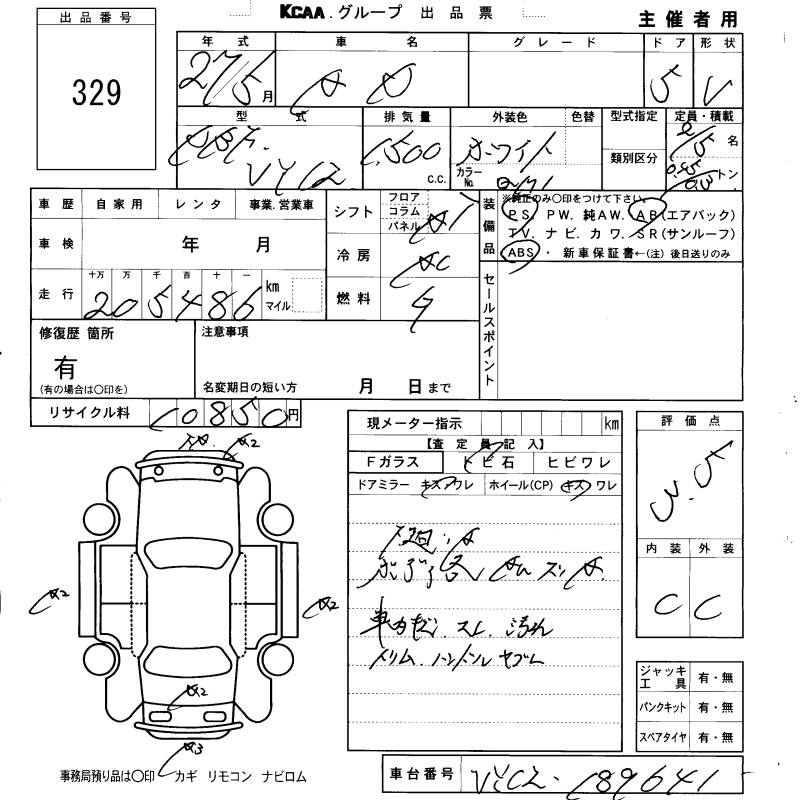 KCAA.グループ 出品票
主催者用
出品番号
329
年式 車名 グレード ドア 形状
27/5月 AD 5 V
型式 排気量 外装色 色替 型式指定 定員・積載
DBF- 1,500 ホワイト 2/5名
VY12 c.c. カラーNo. 類別区分 トン
車歴 自家用 レンタ 事業.営業車
車検 年 月
走行 十万 万 千 百 十 一
205486 km マイル
シフト フロア コラム パネル AT
冷房 AC
燃料 G
装備品
※純正のみ〇印をつけて下さい。
PS. PW. 純AW. AB(エアバック)
TV. ナビ. カワ. SR(サンルーフ)
ABS ・ 新車保証書←(注)後日送りのみ
セールスポイント
修復歴 箇所
有
(有の場合は〇印を)
注意事項
名変期日の短い方 月 日まで
リサイクル料 10850円
現メーター指示 km
【査定員記入】
Fガラス トビ石 ヒビワレ
ドアミラー キズ ワレ ホイール(CP) キズ ワレ
評価点
3.5
内装 外装
C C
A2
A2
A2
A2
A3
車内キズ. スレ. 汚れ
ジャッキ工具 有・無
パンクキット 有・無
スペアタイヤ 有・無
事務局預り品は〇印 カギ リモコン ナビロム
車台番号 VY12-189641